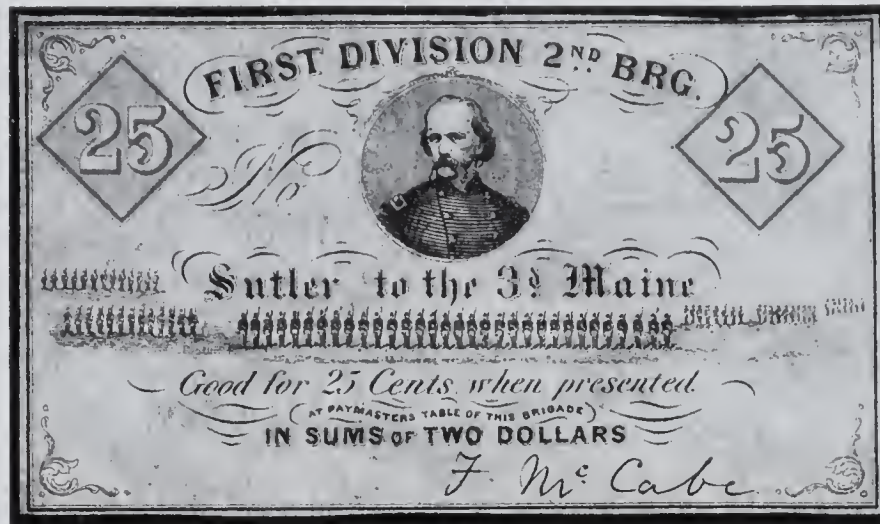 FIRST DIVISION 2ND BRG.
25
25
No
Sutler to the 3d Maine
Good for 25 Cents, when presented
(AT PAYMASTERS TABLE OF THIS BRIGADE)
IN SUMS OF TWO DOLLARS
F. McCabe